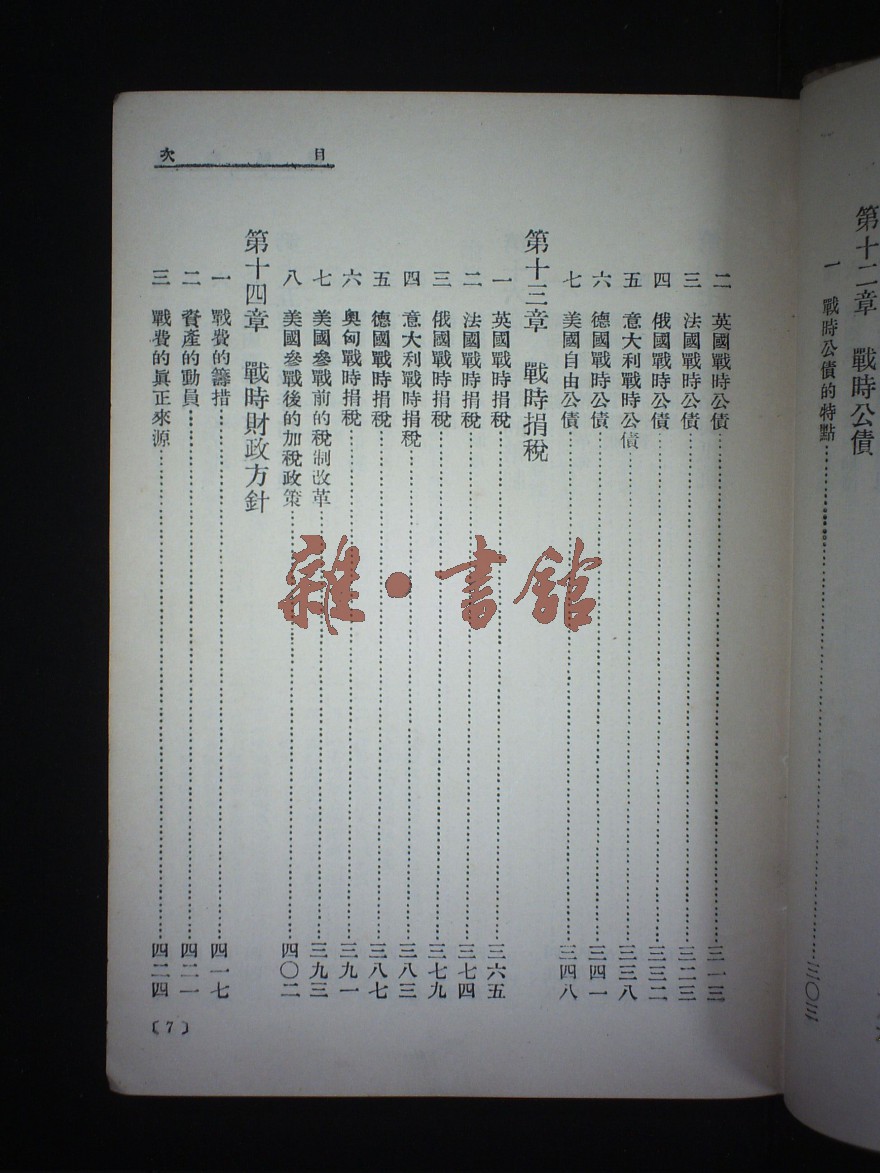 第十二章 戰時公債
一 戰時公債的特點……三〇三
目次
二 英國戰時公債……三一三
三 法國戰時公債……三二三
四 俄國戰時公債……三三二
五 意大利戰時公債……三三八
六 德國戰時公債……三四一
七 美國自由公債……三四八
第十三章 戰時捐稅
一 英國戰時捐稅……三六五
二 法國戰時捐稅……三七四
三 俄國戰時捐稅……三七九
四 意大利戰時捐稅……三八三
五 德國戰時捐稅……三八七
六 奧匈戰時捐稅……三九一
七 美國參戰前的稅制改革……三九三
八 美國參戰後的加稅政策……四〇二
第十四章 戰時財政方針
一 戰費的籌措……四一七
二 資產的動員……四二一
三 戰費的眞正來源……四二四
〔7〕
雜·書館